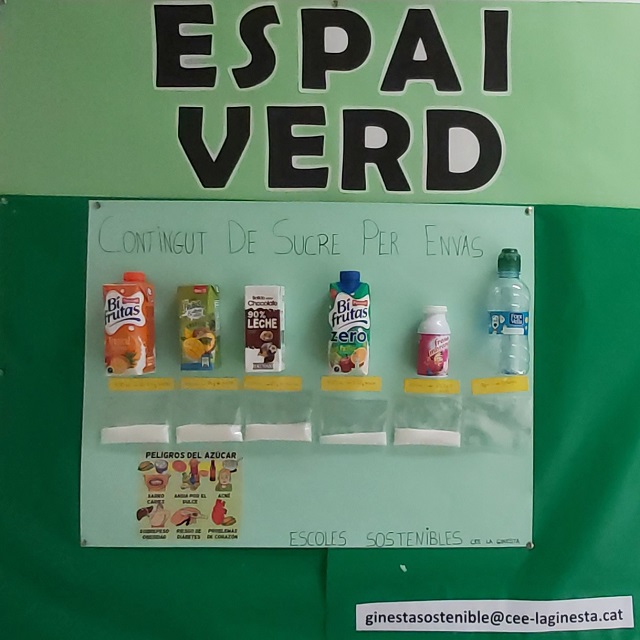 ESPAI
VERD
CONTINGUT DE SUCRE PER ENVÀS
Bi
frutas
Chocolate
90%
LECHE
Bi
frutas
zero
PELIGROS DEL AZÚCAR
CARIES
ANSIA POR EL
DULCE
ACNÉ
SOBREPESO
OBESIDAD
RIESGO DE
DIABETES
PROBLEMAS
DE CORAZÓN
ESCOLES SOSTENIBLES CEE LA GINESTA
ginestasostenible@cee-laginesta.cat